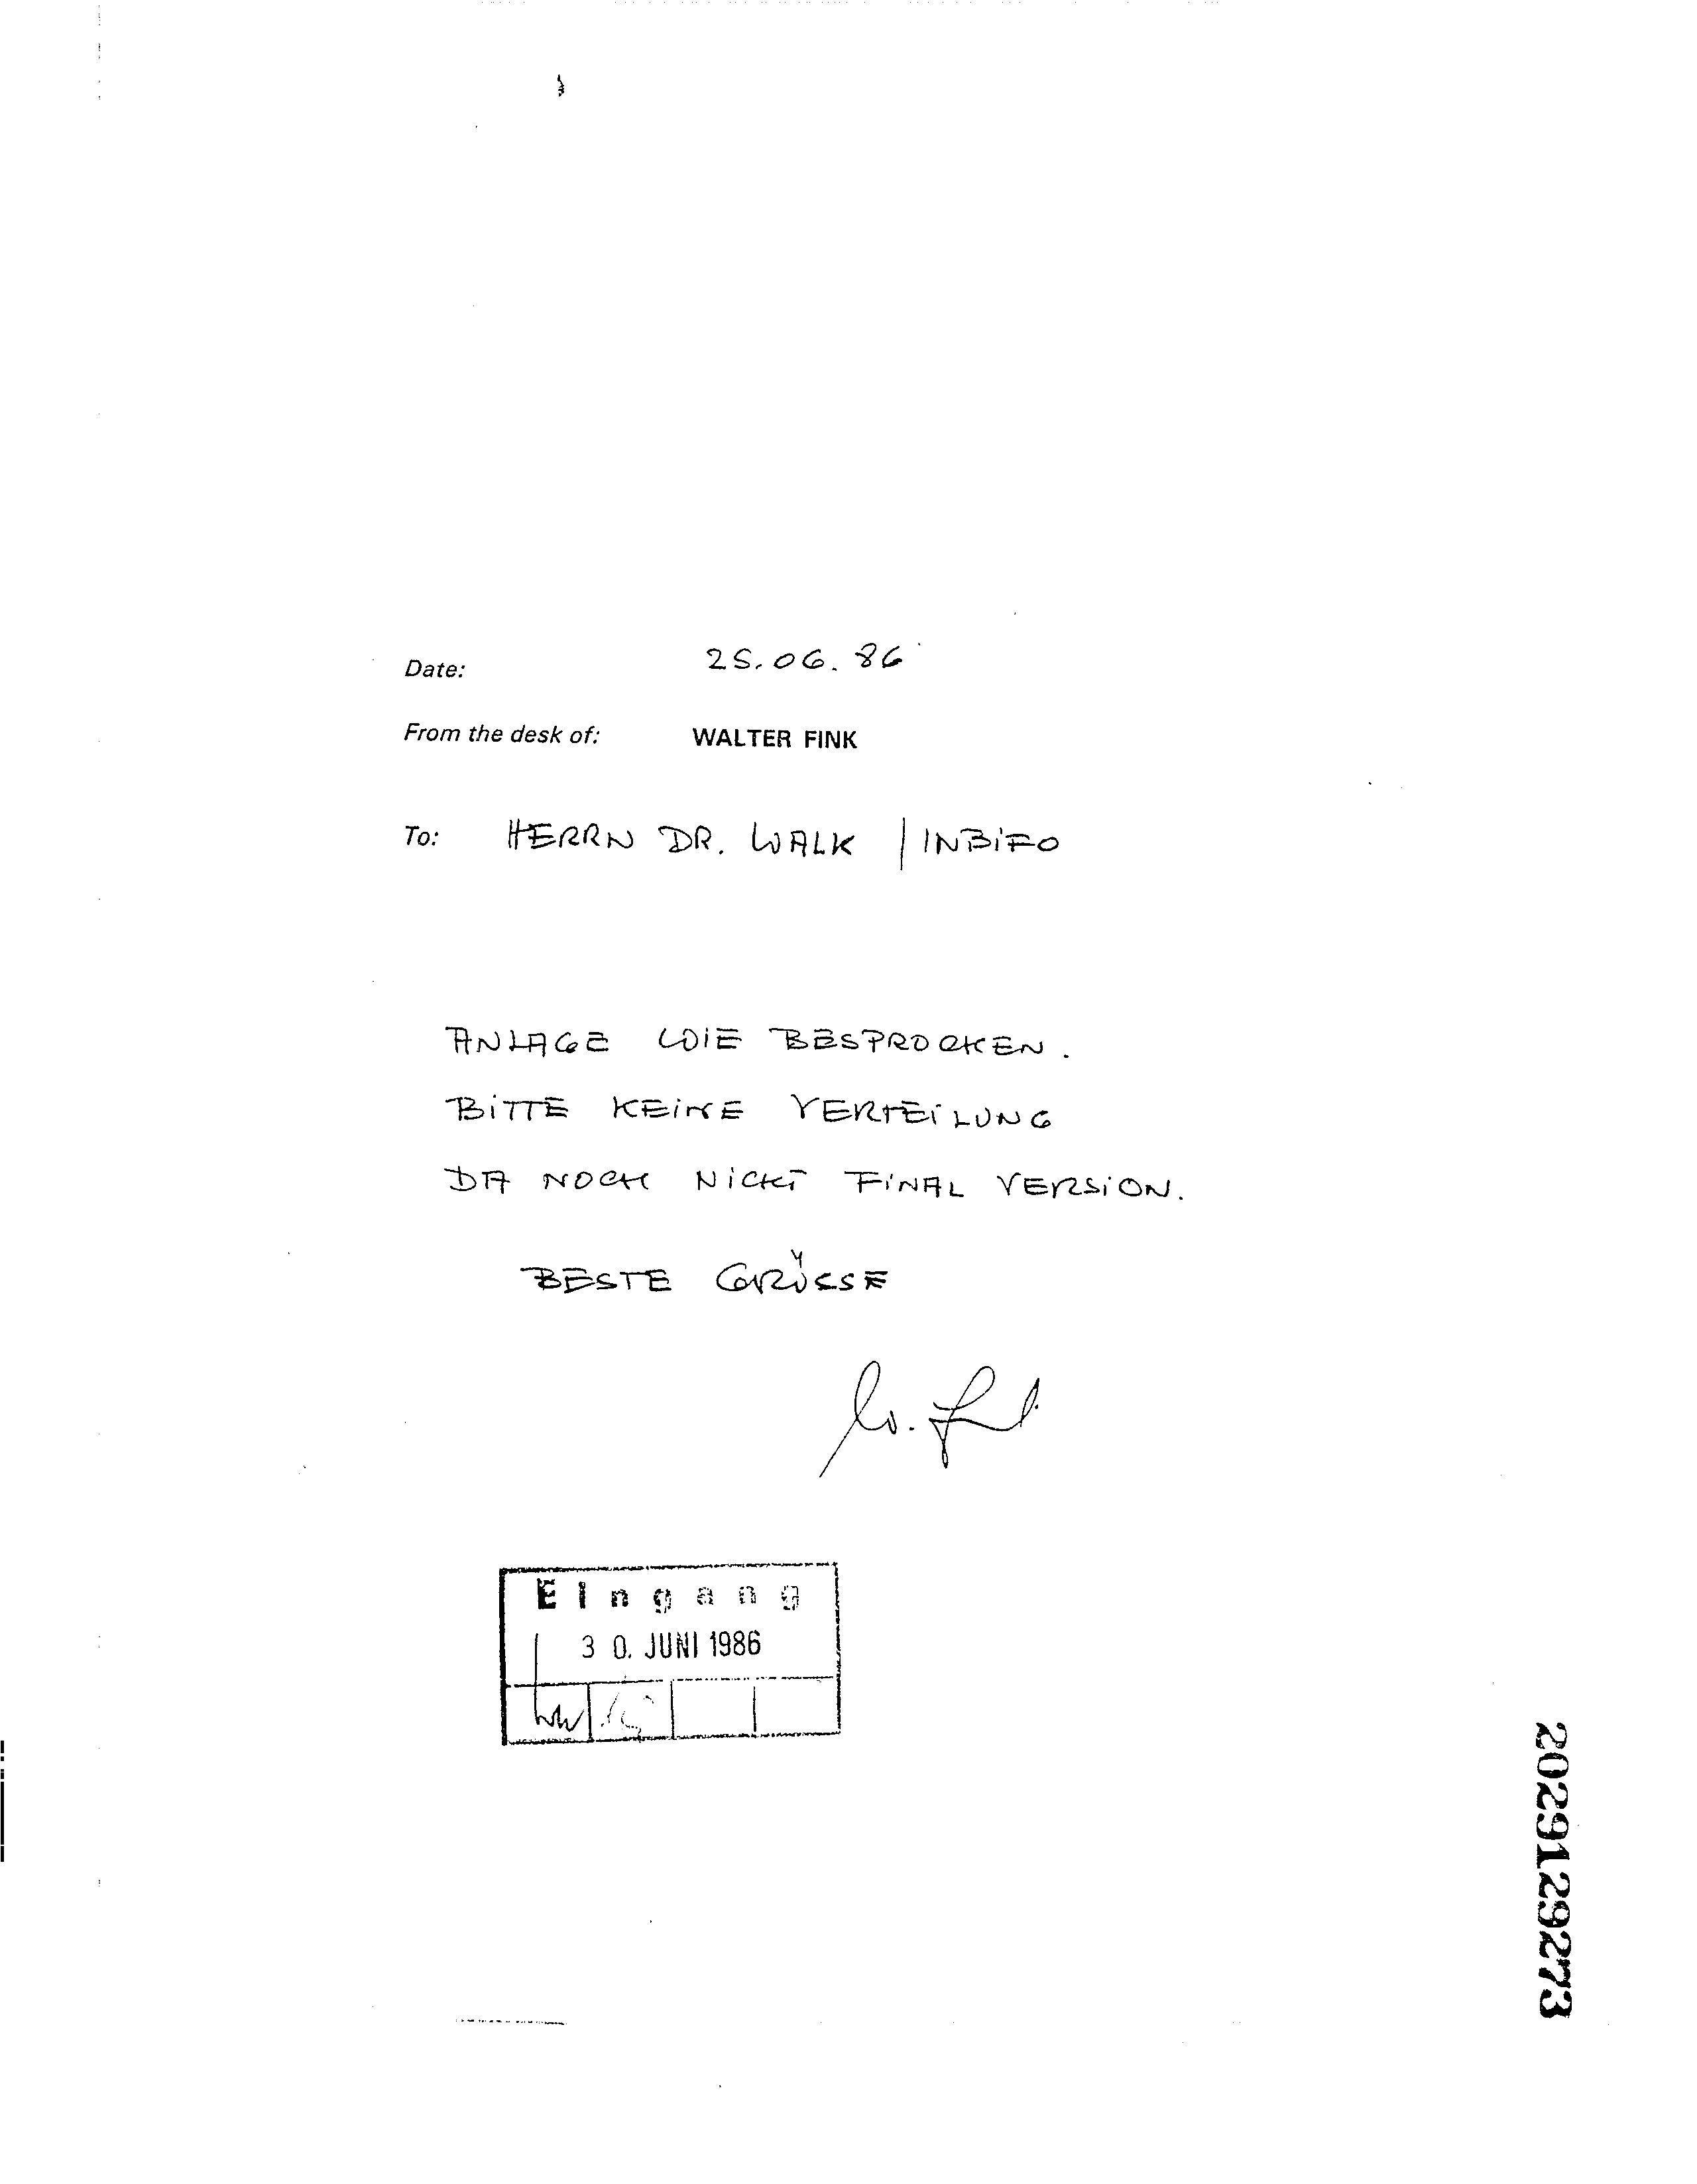 Date: 25.06.86
From the desk of: WALTER FINK
To: HERRN DR. WALK / INBIFO
ANLAGE WIE BESPROCHEN.
BITTE KEINE VERTEILUNG
DA NOCH NICHT FINAL VERSION.
BESTE GRÜSSE
W. Fink
Eingang
30. JUNI 1986
2029129273